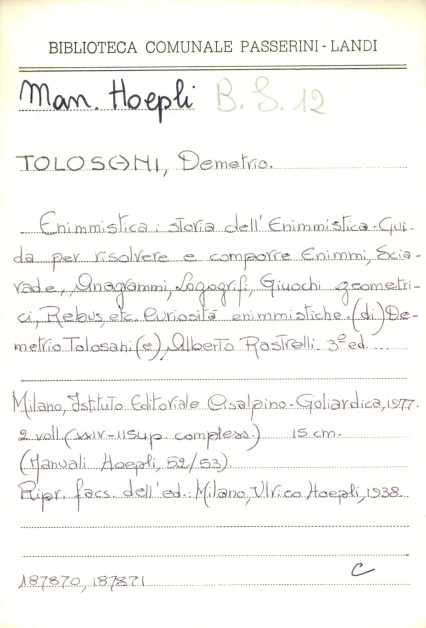 BIBLIOTECA COMUNALE PASSERINI - LANDI
Man. Hoepli B. S. 12
TOLOSANI, Demetrio.
Enimmistica: storia dell'Enimmistica-Gui-
da per risolvere e comporre Enimmi, Scia-
rade, Anagrammi, Logogrifi, Giuochi geometri-
ci, Rebus, etc. Curiosità enimmistiche. (di) De-
metrio Tolosani (e) Alberto Rastrelli. 3ª ed.
Milano, Istituto Editoriale Cisalpino-Goliardica, 1977.
2 voll. (XXIV-1154 p. compless.) 15 cm.
(Manuali Hoepli, 52/53).
Ripr. facs. dell'ed.: Milano, Ulrico Hoepli, 1938.
C
187870, 187871